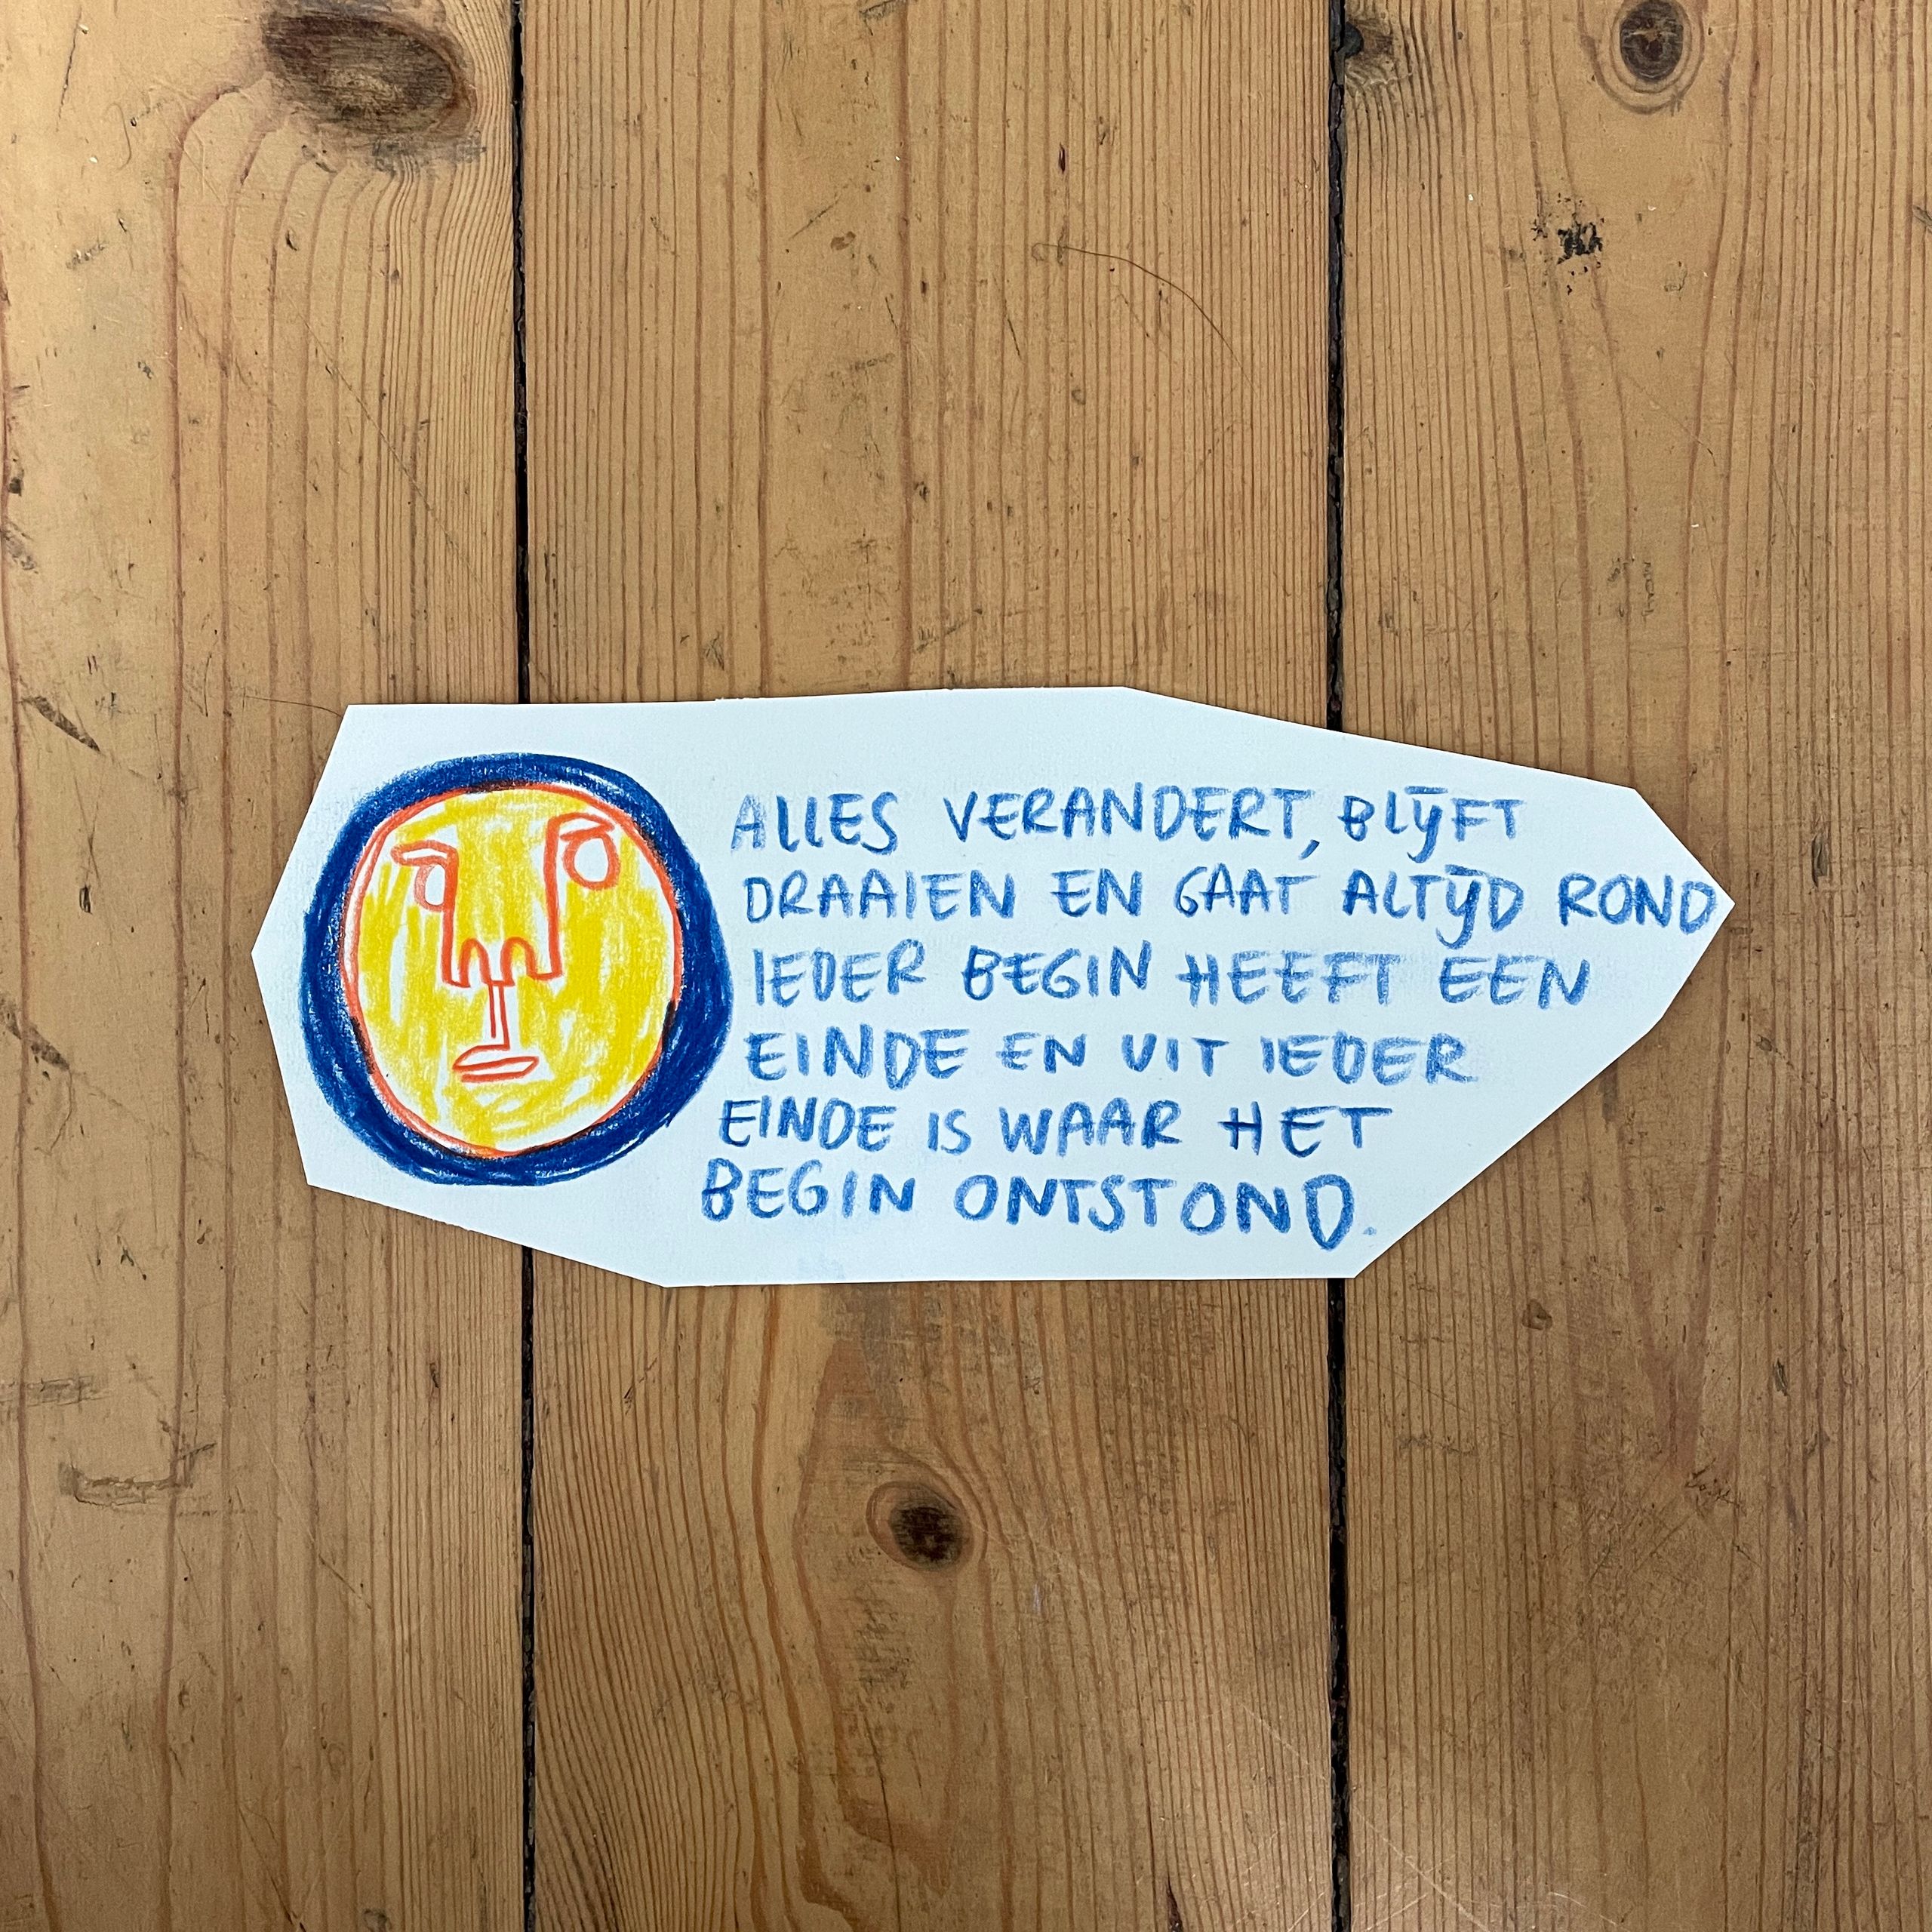 ALLES VERANDERT, BLIJFT
DRAAIEN EN GAAT ALTIJD ROND
IEDER BEGIN HEEFT EEN
EINDE EN UIT IEDER
EINDE IS WAAR HET
BEGIN ONTSTOND.